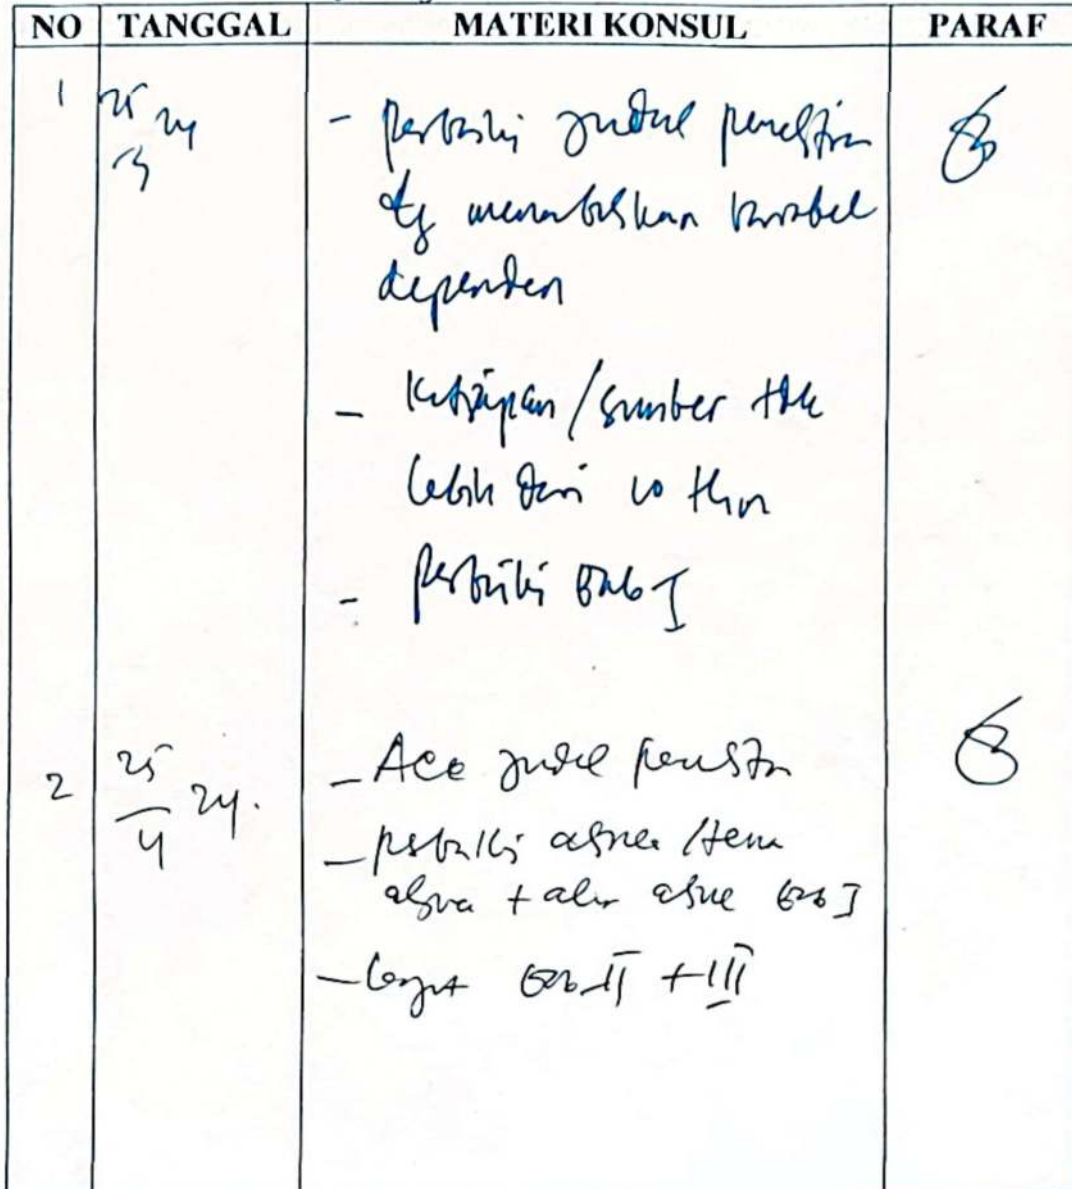 NO TANGGAL MATERI KONSUL PARAF
1 25 24 - perbaiki judul penelitian
3 dg menambahkan variabel
dependen
- Kutipan / sumber tdk
lebih dari 10 thn
- perbaiki BAB I
2 25 24. - Acc judul penelitian
4 - perbaiki
+ alur bab I
- lanjut bab II + III